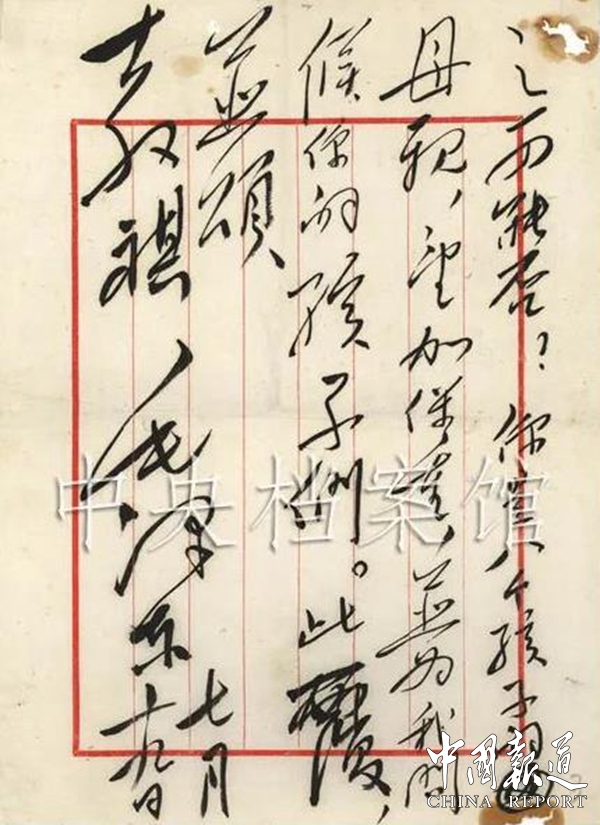 之，可能否？你是八个孩子的
母親，望加保重，並为我问
候你的孩子们。此覆，
並頌
教祺！毛泽东
七月
十九日
中央档案馆
中国报道
CHINA REPORT